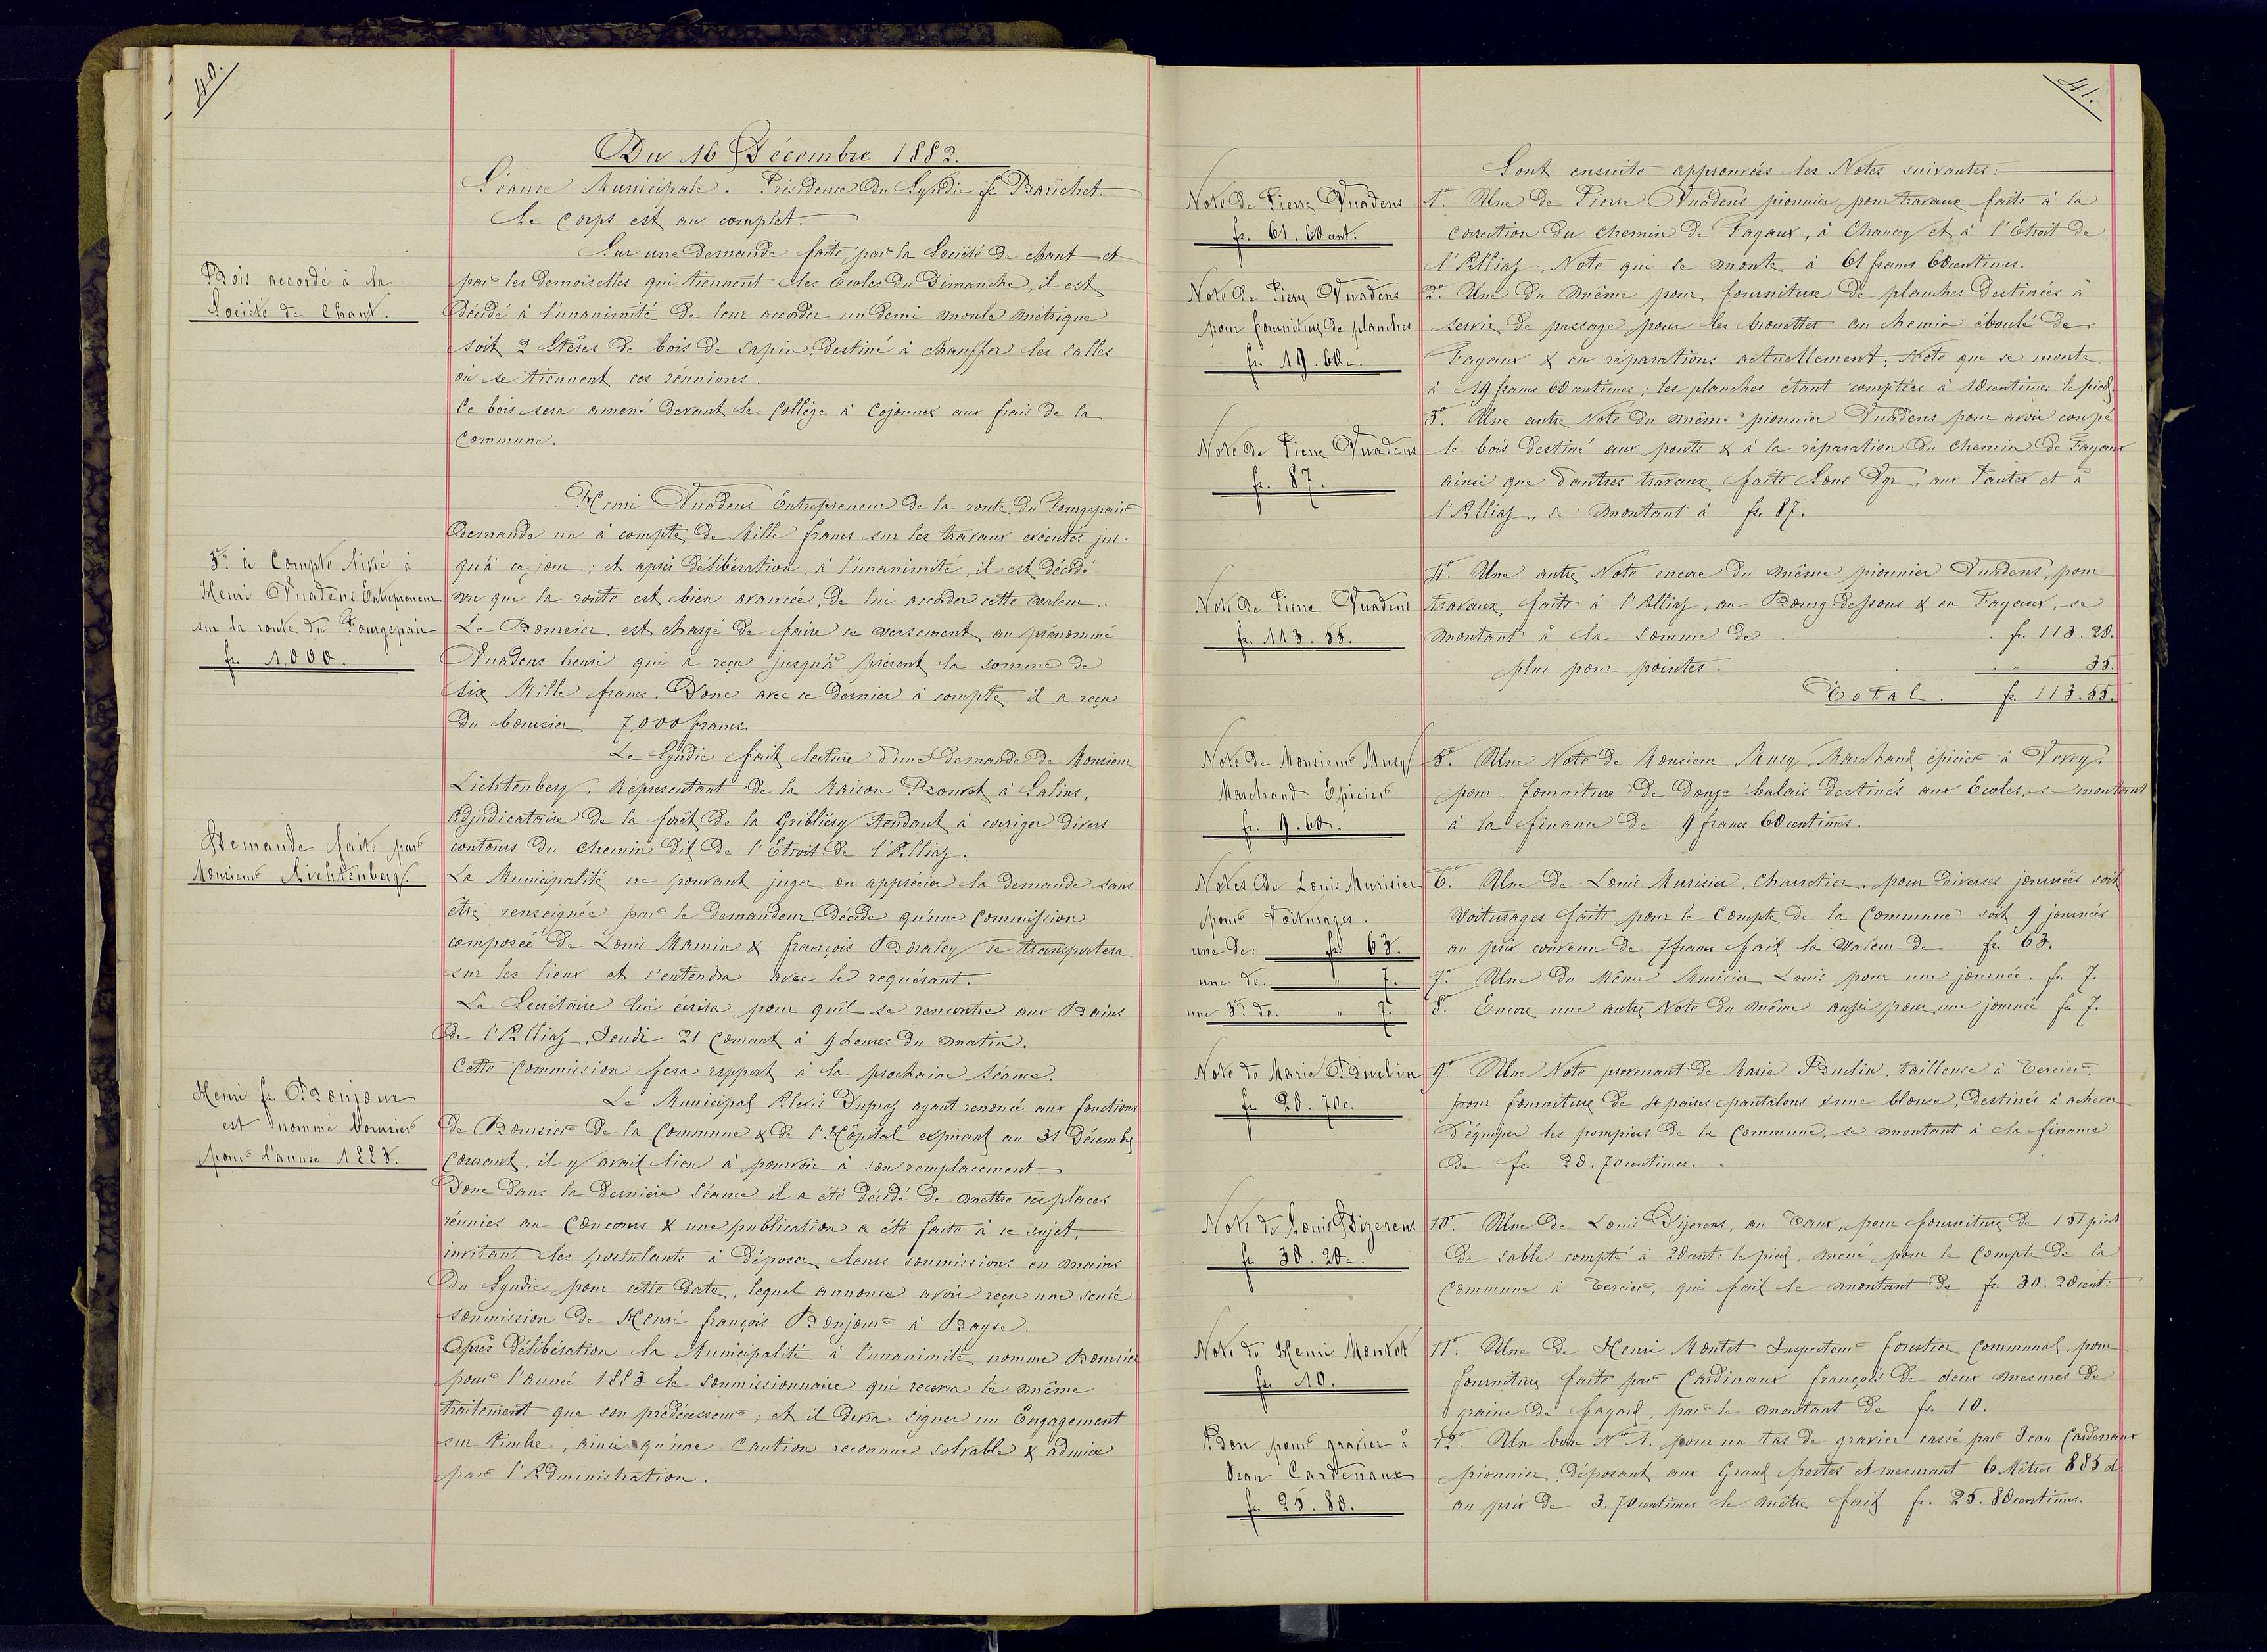 40.
Du 16 Décembre 1882.
Séance Municipale. Présidence du Syndic fs Baüchet.
Le corps est au complet.
Bois accordé à la
Société de Chant.
Sur une demande faite par la Société de chant et
par les demoiselles qui tiennent les Écoles du Dimanche, il est
décidé à l'unanimité de leur accorder un demi moule métrique
soit 2 Stères de bois de sapin, destiné à chauffer les salles
où se tiennent ces réunions.
Ce bois sera amené devant le Collège à Cojonnex aux frais de la
Commune.
3e à Compte livré à
Henri Vuadens Entrepreneur
sur la route du Fourgepain
fr. 1,000.
Henri Vuadens Entrepreneur de la route du Fourgepain
demande un à compte de Mille francs sur les travaux exécutés jus-
qu'à ce jour ; et après délibération, à l'unanimité, il est décidé
vu que la route est bien avancée, de lui accorder cette valeur.
Le Boursier est chargé de faire ce versement au prénommé
Vuadens henri qui a reçu jusqu'à présent la somme de
six Mille francs. Donc avec ce dernier à compte il a reçu
du boursier 7,000 francs
Demande faite par
Monsieur Lichtenberg.
Le Syndic fait lecture d'une demande de Monsieur
Lichtenberg, Représentant de la Maison Bouvet à Salins,
adjudicataire de la forêt de la Gribliéry tendant à corriger divers
contours du chemin dit de l'Étroit de l'Alliaz.
La Municipalité ne pouvant juger ou apprécier la demande sans
être renseignée par le demandeur décide qu'une Commission
composée de Louis Mamin & françois Bonaley se transportera
sur les lieux et s'entendra avec le requérant.
Le Secrétaire lui écrira pour qu'il se rencontre aux Bains
de l'Alliaz, Jeudi 21 Courant à 9 heures du matin.
Cette Commission fera rapport à la prochaine Séance.
Henri fs Bonjour
est nommé boursier
pour l'année 1883.
Le Municipal Alexis Dupraz ayant renoncé aux fonctions
de Boursier de la Commune & de l'Hôpital expirant au 31 Décembre
Courant, il y avait lieu à pourvoir à son remplacement.
Donc dans la dernière Séance il a été décidé de mettre ces places
réunies au Concours & une publication a été faite à ce sujet,
invitant les postulants à déposer leurs soumissions en mains
du Syndic pour cette date, lequel annonce avoir reçu une seule
soumission de Henri françois Bonjour à Bayse.
Après délibération la Municipalité à l'unanimité nomme Boursier
pour l'année 1883 le soumissionnaire qui recevra le même
traitement que son prédécesseur ; et il devra signer un Engagement
sur timbre, ainsi qu'une Caution reconnue solvable & admise
par l'Administration.
41.
Sont ensuite approuvées les Notes suivantes :
Note de Pierre Vuadens
fr. 61. 60 cent.
1o Une de Pierre Vuadens pionnier pour travaux faits à la
correction du chemin de Fayaux, à Chancey et à l'Etroit de
l'Alliaz, Note qui se monte à 61 francs 60 centimes.
Note de Pierre Vuadens
pour fourniture de planches
fr. 19. 60 c.
2o Une du même pour fourniture de planches destinées à
servir de passage pour les brouettes au chemin éboulé de
Fayaux & en réparations actuellement ; Note qui se monte
à 19 francs 60 centimes ; les planches étant comptées à 10 centimes le pied.
Note de Pierre Vuadens
fr. 87.
3o Une autre Note du même pionnier Vuadens pour avoir coupé
le bois destiné aux ponts & à la réparation du chemin de Fayaux
ainsi que d'autres travaux faits Sous Dzr, aux Pautex et à
l'Alliaz, se montant à fr. 87.
Note de Pierre Vuadens
fr. 113. 55.
4o Une autre Note encore du même pionnier Vuadens, pour
travaux faits à l'Alliaz, au Bourg-dessous & en Fayaux, se
montant à la somme de . . . fr. 113. 20.
plus pour pointes. . . " 35.
Total. fr. 113. 55.
Note de Monsieur Mury
Marchand Epicier
fr. 9. 60.
5o Une Note de Monsieur Mury, Marchand épicier à Vevey,
pour fourniture de Douze balais destinés aux Écoles, se montant
à la finance de 9 francs 60 centimes.
Notes de Louis Murisier
pour Voiturages.
une de: fr. 63.
une de. " 7.
une 3e de. " 7.
6o Une de Louis Murisier, Charretier, pour diverses journées soit
Voiturages faits pour le Compte de la Commune soit 9 journées
au prix convenu de 7 francs fait la valeur de fr. 63.
7o Une du Même Murisier Louis pour une journée. fr. 7.
8o Encore une autre Note du même aussi pour une journée fr. 7.
Note de Marie Buclin
fr. 20. 70 c.
9o Une Note provenant de Marie Buclin, tailleuse à Tercier,
pour fourniture de 4 paires pantalons & une blouse, destinés à achever
d'équiper les pompiers de la Commune, se montant à la finance
de fr. 20. 70 centimes.
Note de Louis Dizerens
fr. 30. 20 c.
10o Une de Louis Dizerens, au Daux, pour fourniture de 151 pieds
de sable compté à 20 cent: le pied. mené pour le Compte de la
Commune à Tercier, qui fait le montant de fr. 30. 20 cent:
Note de Henri Montet
fr. 10.
11o Une de Henri Montet Inspecteur forestier Communal, pour
fourniture faite par Cardinaux françois de deux mesures de
graine de fayard, par le montant de fr. 10.
Bon pour gravier à
Jean Cardenaux
fr. 25. 80.
12o Un bon No 1. pour un tas de gravier cassé par Jean Cardenaux
pionnier, déposant aux Grand portes et mesurant 6 Mètres 885 d
au prix de 3. 70 centimes le mètre fait fr. 25. 80 centimes.